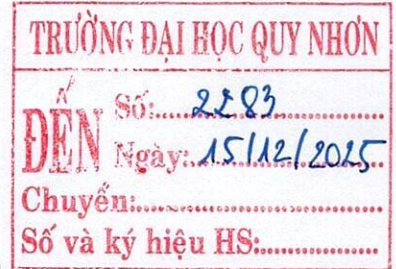 TRƯỜNG ĐẠI HỌC QUY NHƠN
ĐẾN
Số:....2283
Ngày:.15/12/2025
Chuyển:......................................
Số và ký hiệu HS:...................